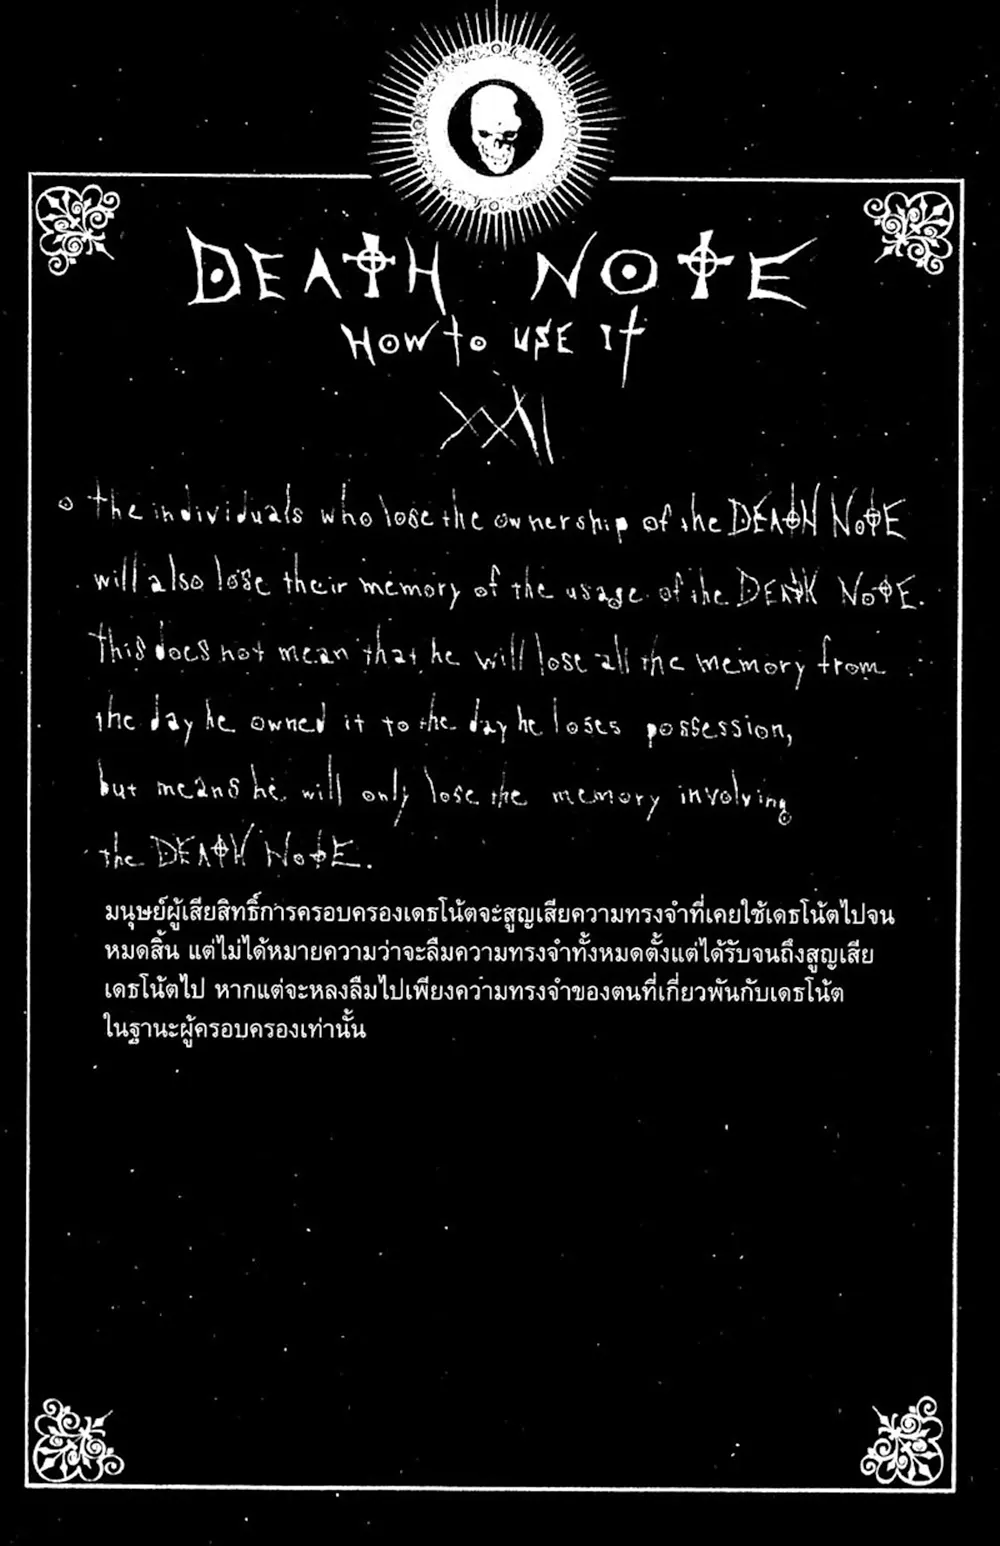 DEATH NOTE
HOW to USE It
XXII
○ the individuals who lose the ownership of the DEATH NOTE
will also lose their memory of the usage of the DEATH NOTE.
this does not mean that he will lose all the memory from
the day he owned it to the day he loses possession,
but means he will only lose the memory involving
the DEATH NOTE.
มนุษย์ผู้เสียสิทธิ์การครอบครองเดธโน้ตจะสูญเสียความทรงจำที่เคยใช้เดธโน้ตไปจน
หมดสิ้น แต่ไม่ได้หมายความว่าจะลืมความทรงจำทั้งหมดตั้งแต่ได้รับจนถึงสูญเสีย
เดธโน้ตไป หากแต่จะหลงลืมไปเพียงความทรงจำของตนที่เกี่ยวพันกับเดธโน้ต
ในฐานะผู้ครอบครองเท่านั้น